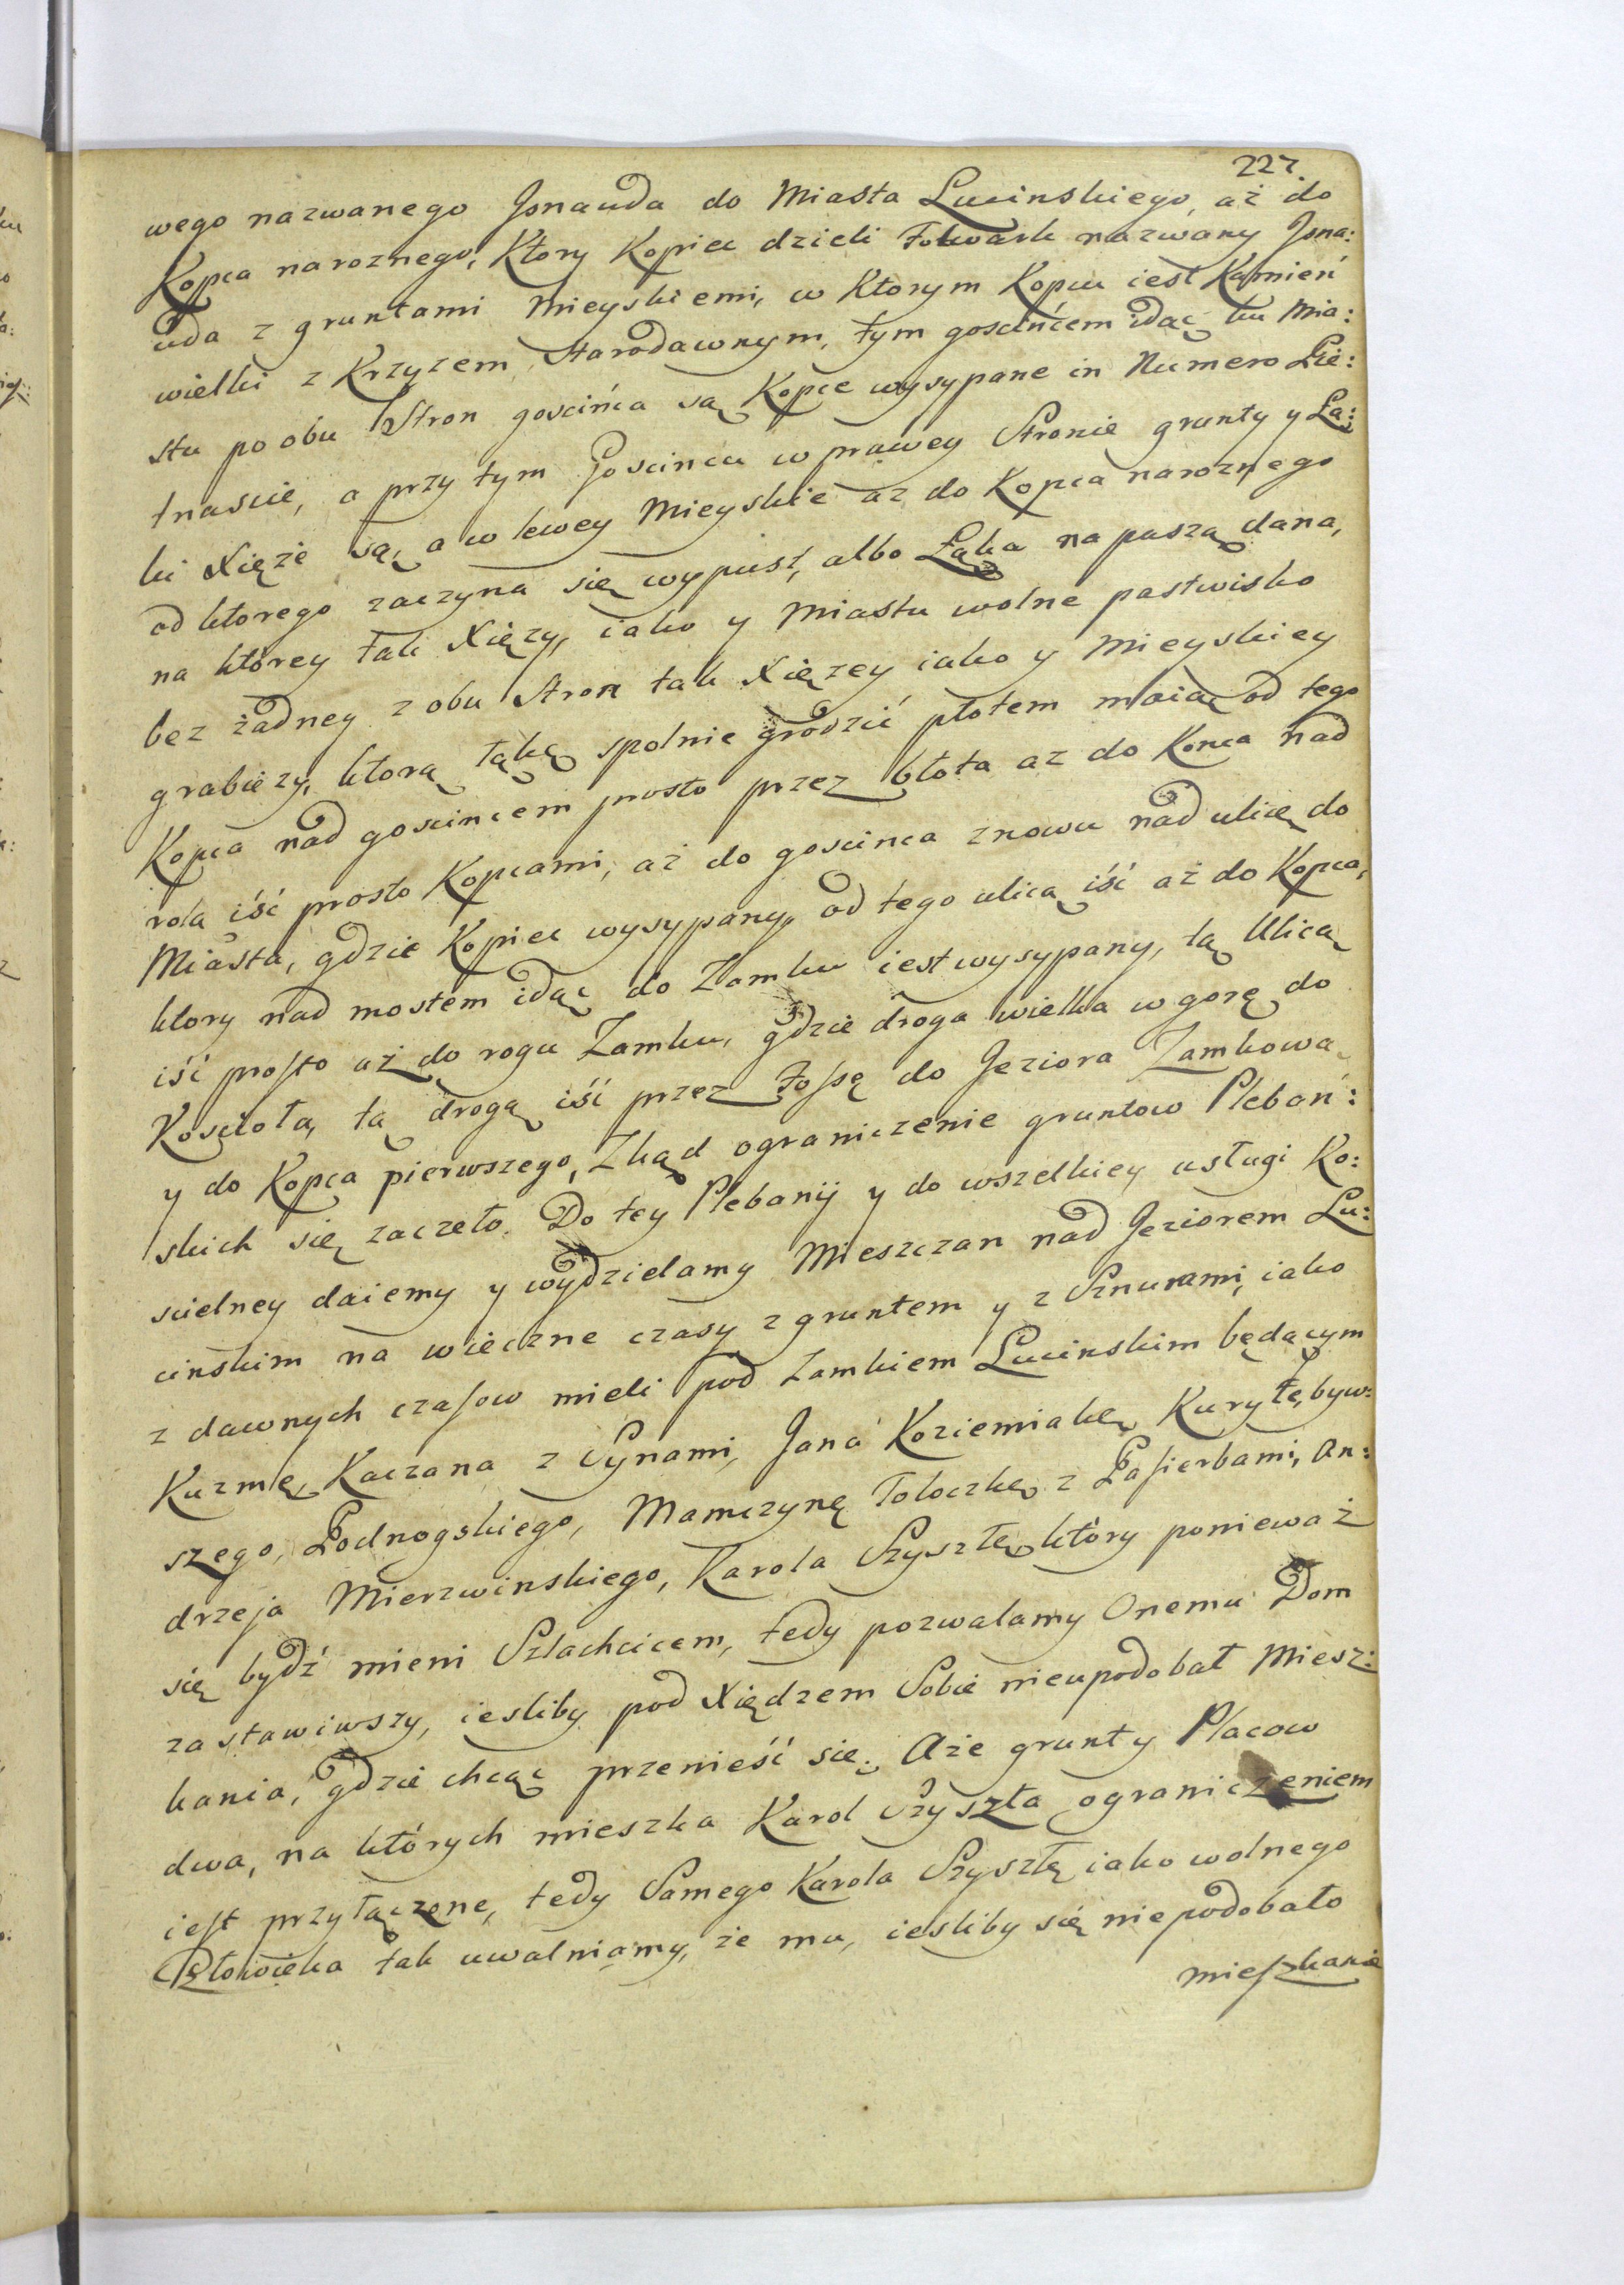 227.
wego nazwanego Jonauda do Miasta Lucinskiego, aż do
Kopca naroznego, Ktory Kopiec dzieli Folwark nazwany Jona:
uda z gruntami Mieyskiemi, w Ktorym Kopcu iest Kamień
wielki z Krzyzem Starodawnym, tym gosćińcem idąc ku Mia:
stu po obu Stron gosćińca są Kopce wysypane in Numero Pie:
tnascie, a przy tym Gosćincu w prawey Stronie grunty y Łą:
ki Xięże są, a w lewey Mieyskie az do Kopca naroznego
od ktorego zaczyna się wypust, albo Łąka na paszą dana,
na którey tak Xięzy, iako y Miastu wolne pastwisko
bez żadney z obu Stron tak Xięzey iako y Mieyskiey
grabiezy, ktorą łąkę spolnie grodzić płotem maiąc od tego
Kopca nad goscincem prosto przez błota az do Konca nad
rola iść prosto Kopcami, aż do goscinca znowu nad ulicę do
Miasta, gdzie Kopiec wysypany, od tego ulicą iść aż do Kopca,
ktory nad mostem idąc do Zamku iest wysypany, tą Ulicą
iść prosto aż do rogu Zamku, gdzie droga wielka w gorę do
Kosciola, tą drogą iść przez Fossę do Jeziora Zamkową
y do Kopca pierwszego, Zkąd ograniczenie gruntow Pleban:
skich się zaczeło. Do tey Plebanij y do wszelkiey usługi Ko:
scielney daiemy y wydzielamy Mieszczan nad Jeziorem Lu:
cinskim na wieczne czasy z gruntem y z Sznurami, iako
z dawnych czasow mieli pod Zamkiem Lucinskim będącym
Kuzmę Kaczana z Synami, Jana Koziemiakę Kuryłę, byw:
szego, Podnogskiego, Mamczynę Toloczkę z Pasierbami, An:
drzeja Mierzwinskiego, Karola Szyszłę, który ponieważ
się bydź mieni Szlachcicem, tedy pozwalamy Onemu Dom
zastawiwszy, iesliby pod Xiędzem Sobie nieupodobał Miesz:
kania, gdzie chcąc przenieść się. Aże grunty Placow
dwa, na których mieszka Karol Szyszła ograniczeniem
iest przyłączone, tedy Samego Karola Szyszłę iako wolnego
Człowieka tak uwalniamy, że mu, iesliby się niepodobało
mieszkanie